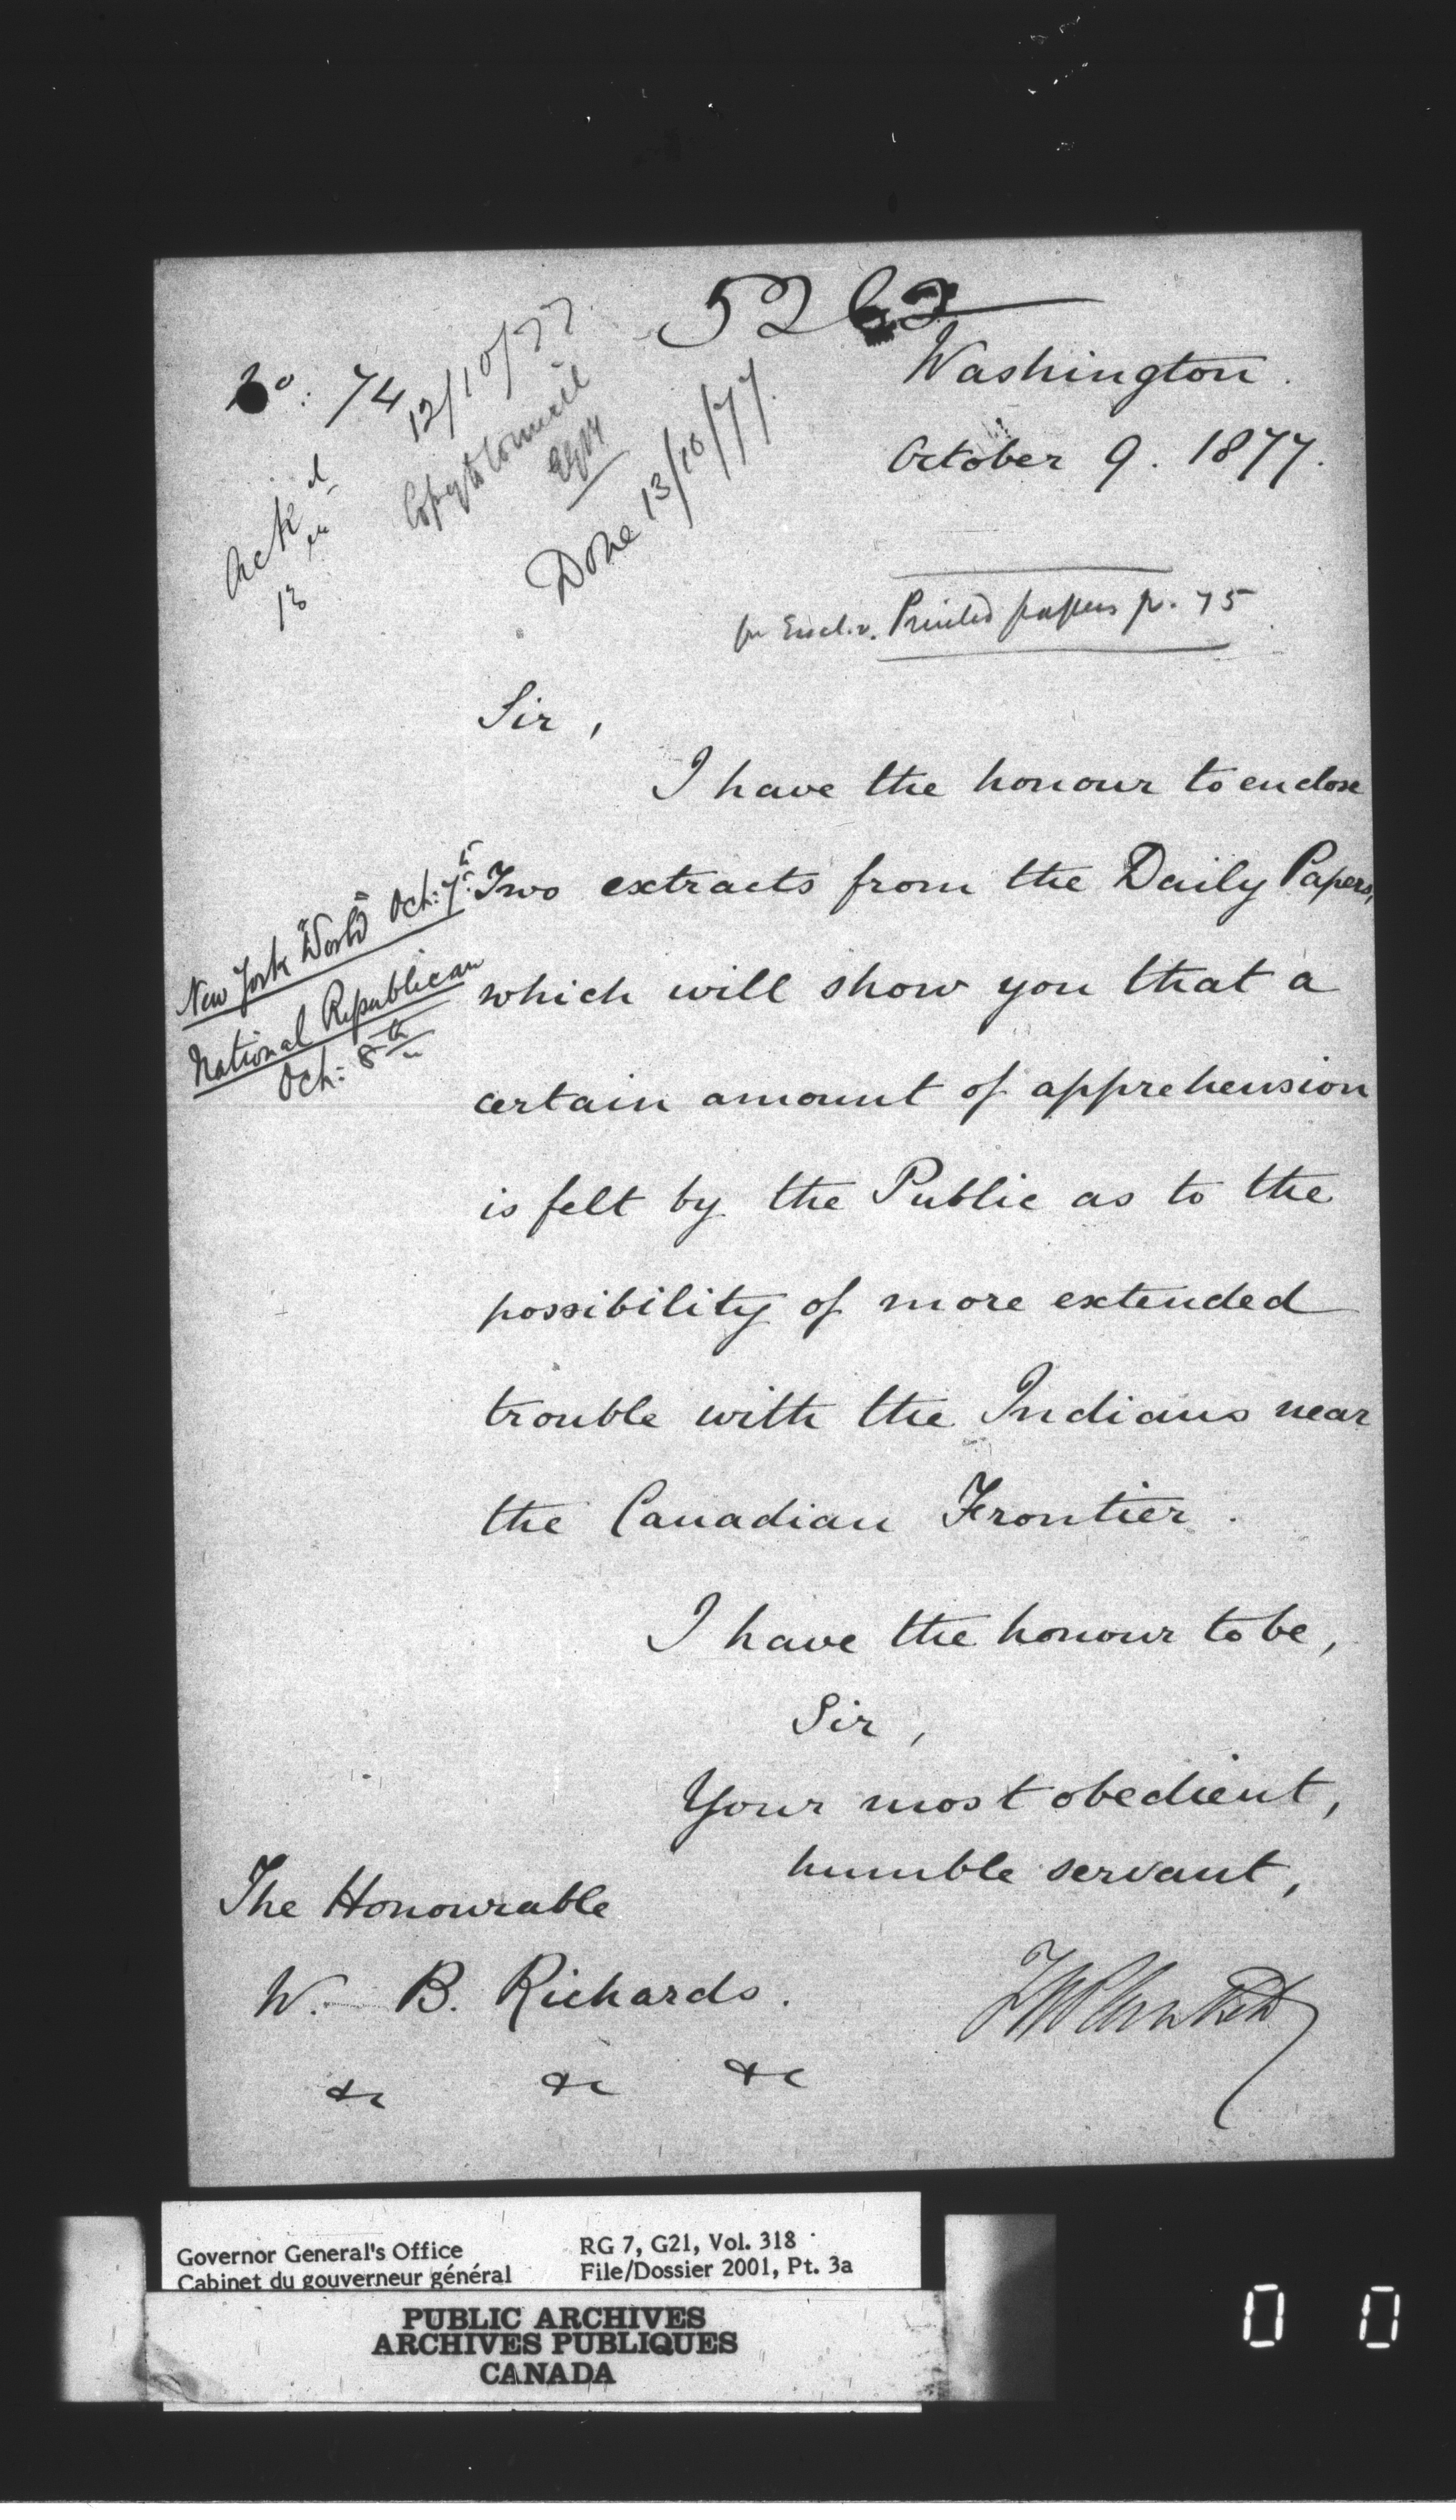 5262
No: 74
12/10/77
Copy to Council
Done 13/10/77.
Ack.d
13
Washington.
October 9. 1877.
for Encl. v. Printed papers p. 75
Sir,
I have the honour to enclose
New York "World" Oct: 7th
Two extracts from the Daily Papers,
National Republican
Oct: 8th
which will show you that a
certain amount of apprehension
is felt by the Public as to the
possibility of more extended
trouble with the Indians near
the Canadian Frontier.
I have the honour to be,
Sir,
Your most obedient,
humble servant,
The Honourable
W. B. Richards.
&c &c &c
Governor General's Office
Cabinet du gouverneur général
RG 7, G21, Vol. 318
File/Dossier 2001, Pt. 3a
PUBLIC ARCHIVES
ARCHIVES PUBLIQUES
CANADA
0 0